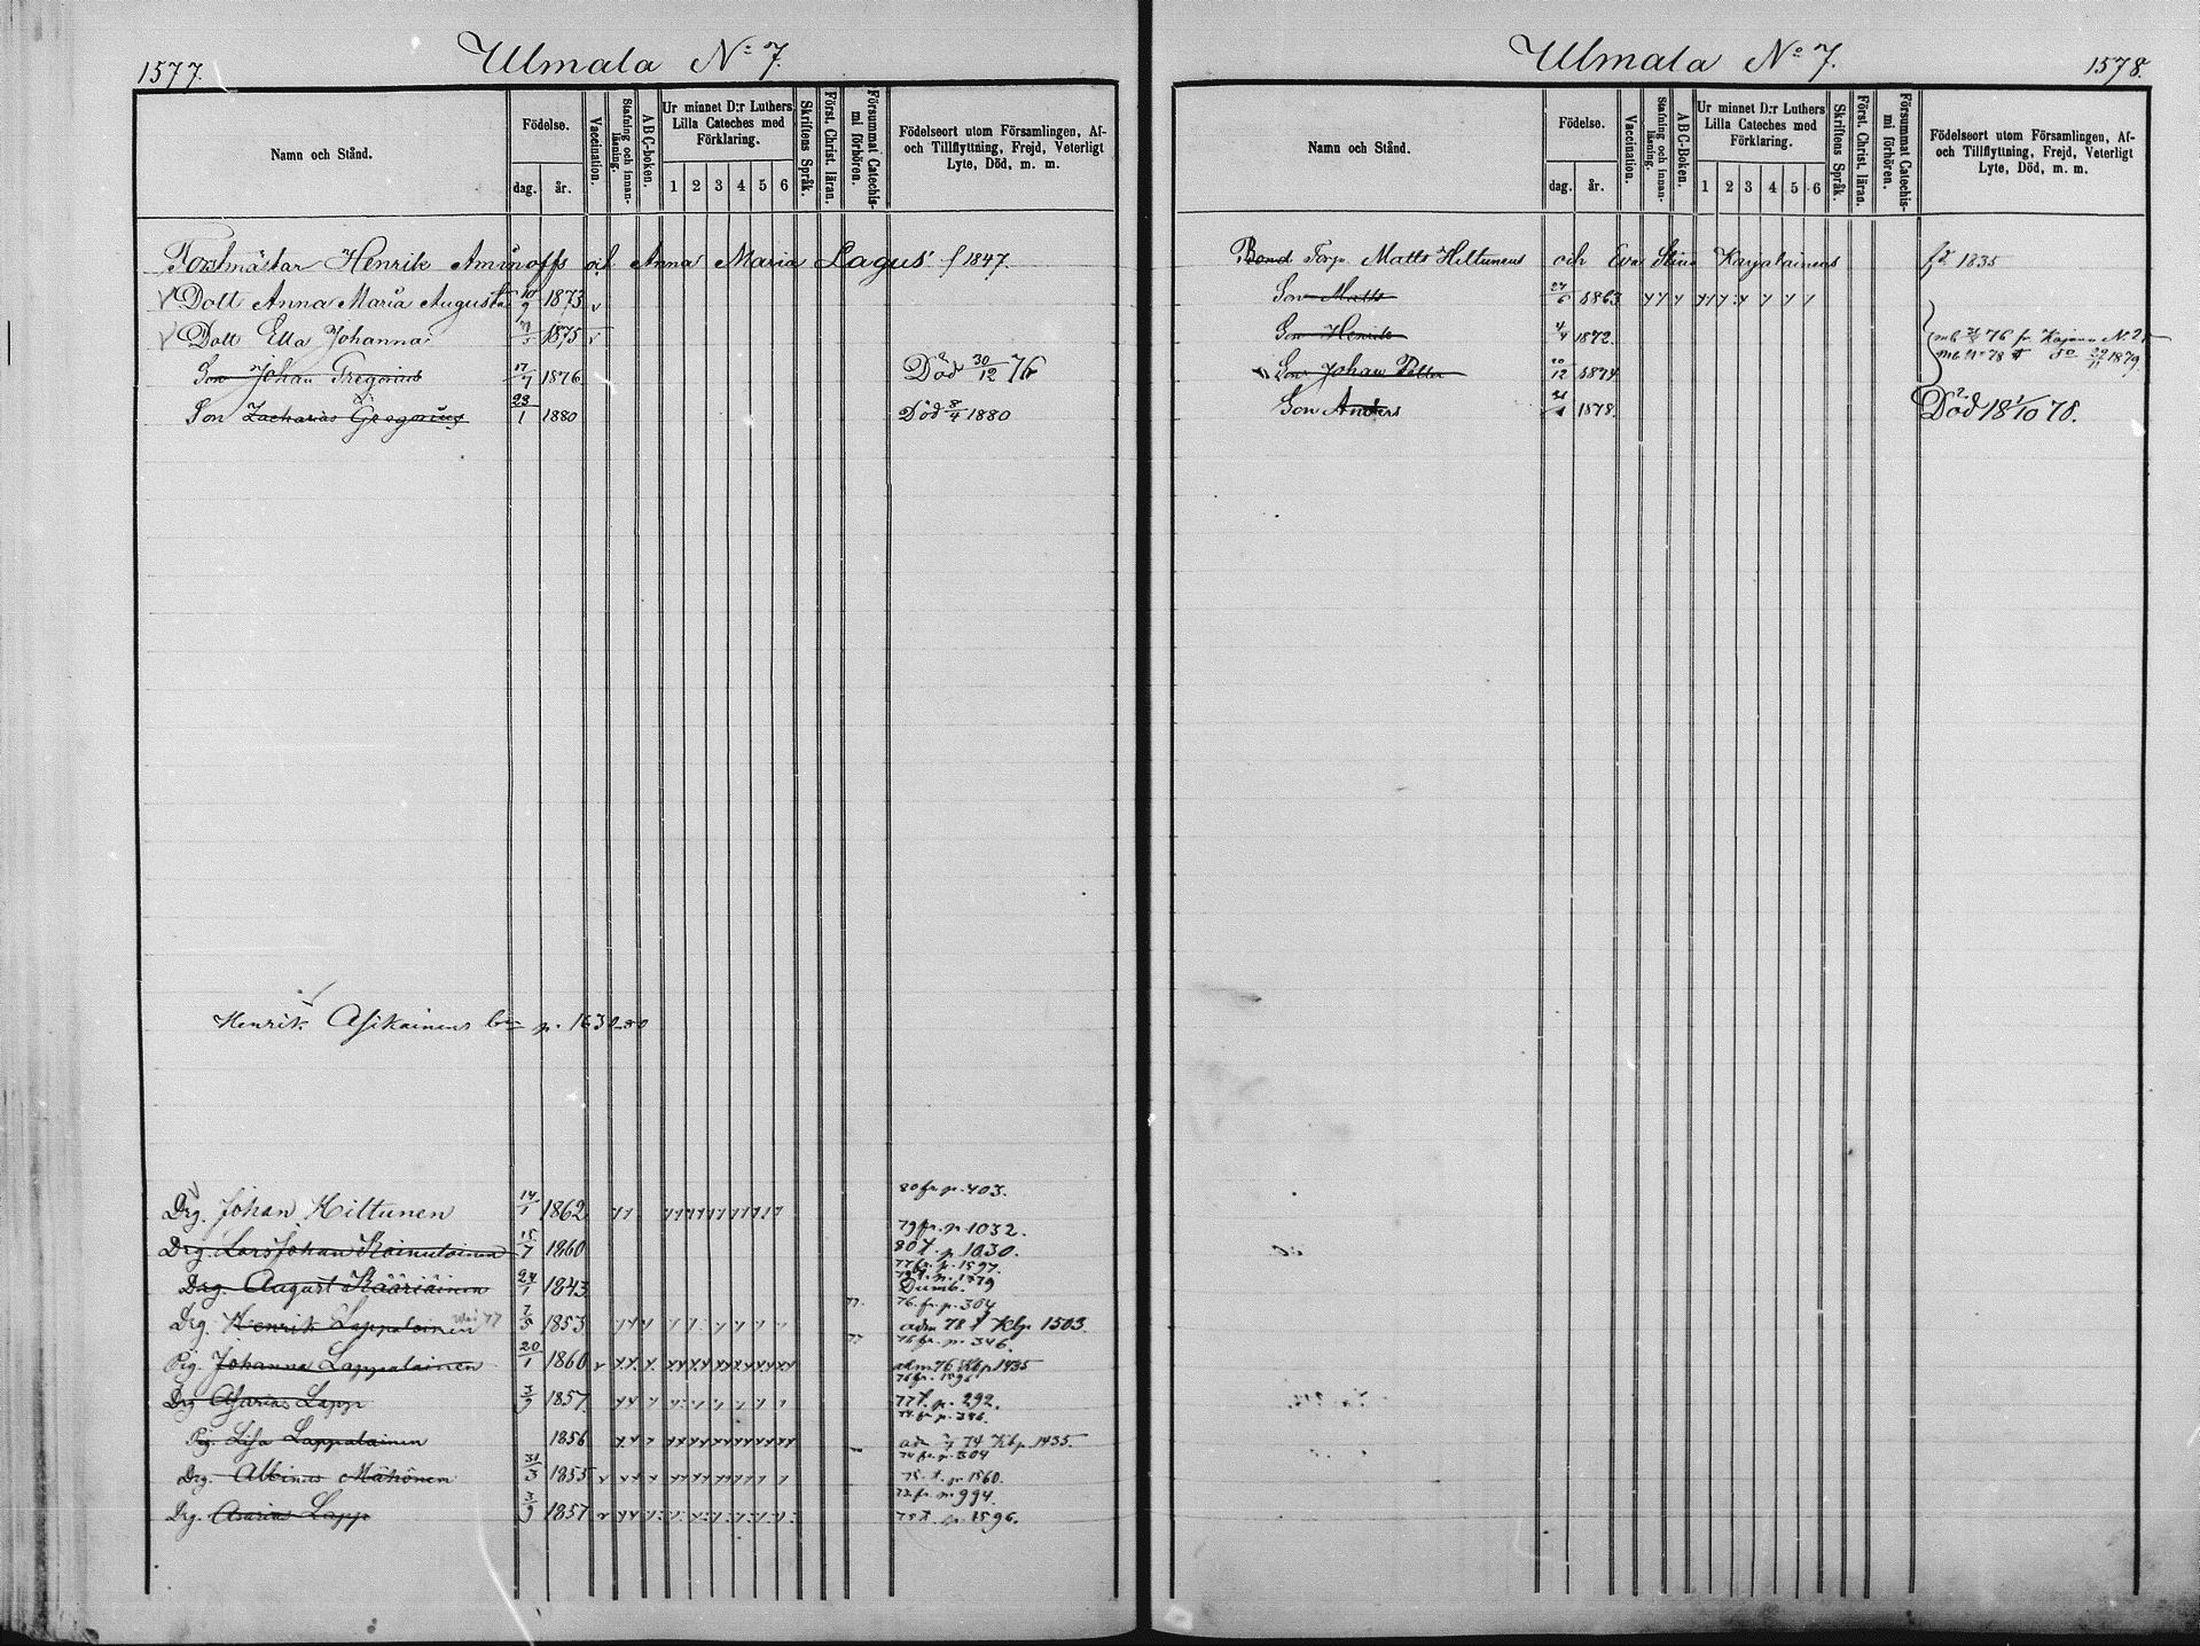 1577.
Ulmala No 7.
Namn och Stånd.
Födelse.
dag.
år.
Vaccination.
Stafning och innanläsning.
ABC-boken.
Ur minnet D:r Luthers
Lilla Cateches med
Förklaring.
1 2 3 4 5 6
Skriftens Språk.
Först. Christ. läran.
Försummat Catechismi förhören.
Födelseort utom Församlingen, Af-
och Tillflyttning, Frejd, Veterligt
Lyte, Död, m. m.
Forstmästar Henrik Aminoffs och Anna Maria Lagus f 1847.
Dott Anna Maria Augusta 10/9 1873
Dott Ella Johanna 1875
Son Johan Gregorius 17/7 1876 Död 30/12 76
Son Zacharias Gregorius 23/1 1880 Död 8/4 1880
Henrik Asikainens p. 1630
80 fr. p. 403.
Drg. Johan Hiltunen 14/1 1862
79 fr. p. 1032.
Drg. Lars Johan Kainulainen 15/7 1860 80 t. p. 1030.
77 fr. p. 1597.
Drg. August Kääriäinen 24/1 1843 Dumb.
76. fr. p. 304
Drg. Henrik Lappalainen 1853 adm 78 t Kbp 1503.
76 fr. p. 346.
Pig. Johanna Lappalainen 20/1 1860 adm 76 Kbp 1435
Drg Asarias Lapp 3/9 1857 77 t. p. 292.
74 fr. p. 386.
Pig. Lisa Lappalainen 1856 74 Kbp 1435.
74 fr. p. 304
Drg. Albinus Mähönen 31/3 1855 75. t. p. 1560.
72 fr. p. 994.
Drg. Asarias Lapp 3/9 1857 75 t. p. 1596.
Ulmala No 7.
1578.
Namn och Stånd.
Födelse.
dag.
år.
Vaccination.
Stafning och innanläsning.
ABC-Boken.
Ur minnet D:r Luthers
Lilla Cateches med
Förklaring.
1 2 3 4 5 6
Skriftens Språk.
Först. Christ. läran.
Försummat Catechismi förhören.
Födelseort utom Församlingen, Af-
och Tillflyttning, Frejd, Veterligt
Lyte, Död, m. m.
Bond Torp Matts Hiltunens och Eva Stina Karjalainens fd 1835
Son Matts 24/6 1863
Son Henrik 4/4 1872. 76 fr. Kajana No 2
Son Johan Petter 20/12 1874 1879
Son Anders 1878. Död 18 1/10 78.